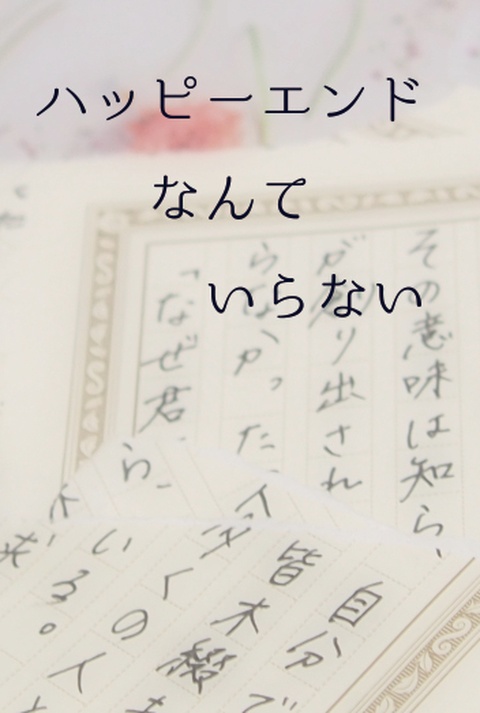 ハッピーエンド
なんて
いらない
その意味は知ら
り出され
らなかった
「なぜ君
ら、
自分で
皆木綴
くの人
いる。
求